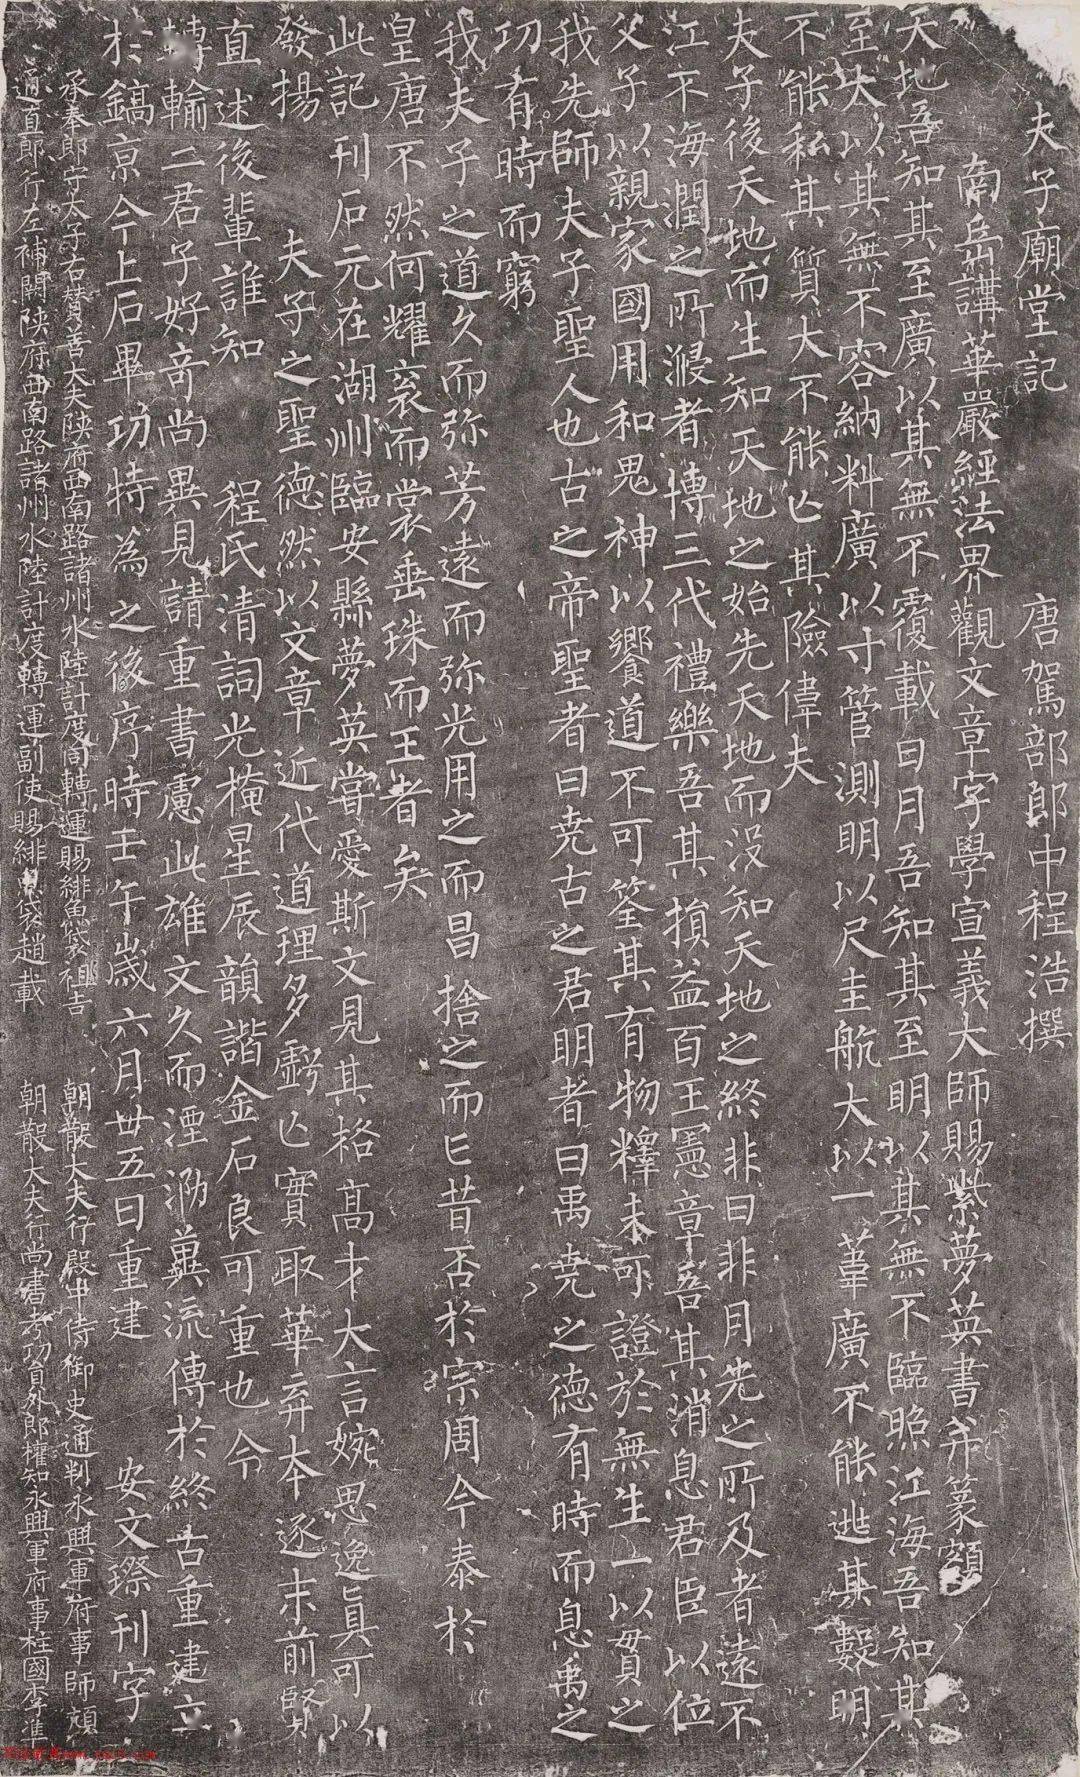 夫子廟堂記 唐駕部郎中程浩撰
南岳講華嚴經法界觀文章字學宣義大師賜紫夢英書并篆額
天地吾知其至廣以其無不覆載日月吾知其至明以其無不臨照江海吾知其
至大以其無不容納料廣以寸管測明以尺圭航大以一葦廣不能逃其數明
不能私其質大不能亡其險偉夫
夫子後天地而生知天地之始先天地而沒知天地之終非日非月光之所及者遠不
江不海潤之所浸者博三代禮樂吾其損益百王憲章吾其消息君臣以位
父子以親家國用和鬼神以饗道不可筌其有物釋未可證於無生一以貫之
我先師夫子聖人也古之帝聖者曰堯古之君明者曰禹堯之德有時而息禹之
功有時而窮
我夫子之道久而弥芳遠而弥光用之而昌捨之而亡昔否於宗周今泰於
皇唐不然何耀衮而裳垂珠而王者矣
此記刊石元在湖州臨安縣夢英嘗愛斯文見其格高才大言婉思逸真可以
發揚 夫子之聖德然以文章近代道理多虧亡實取華弃本逐末前賢
直述後輩誰知 程氏清詞光掩星辰韻諧金石良可重也今
轉輸二君子好奇尚異見請重書慮此雄文久而湮泐冀流傳於終古重建立
於鎬京今上石畢功特為之後序時壬午歲六月廿五日重建 安文璨刊字
承奉郎守太子右贊善大夫陝府西南路諸州水陸計度同轉運賜緋魚袋祖吉 朝散大夫行殿中侍御史通判永興軍府事師頏
通直郎行左補闕陝府西南路諸州水陸計度轉運副使賜緋魚袋趙載 朝散大夫行尚書考功員外郎權知永興軍府事柱國李準